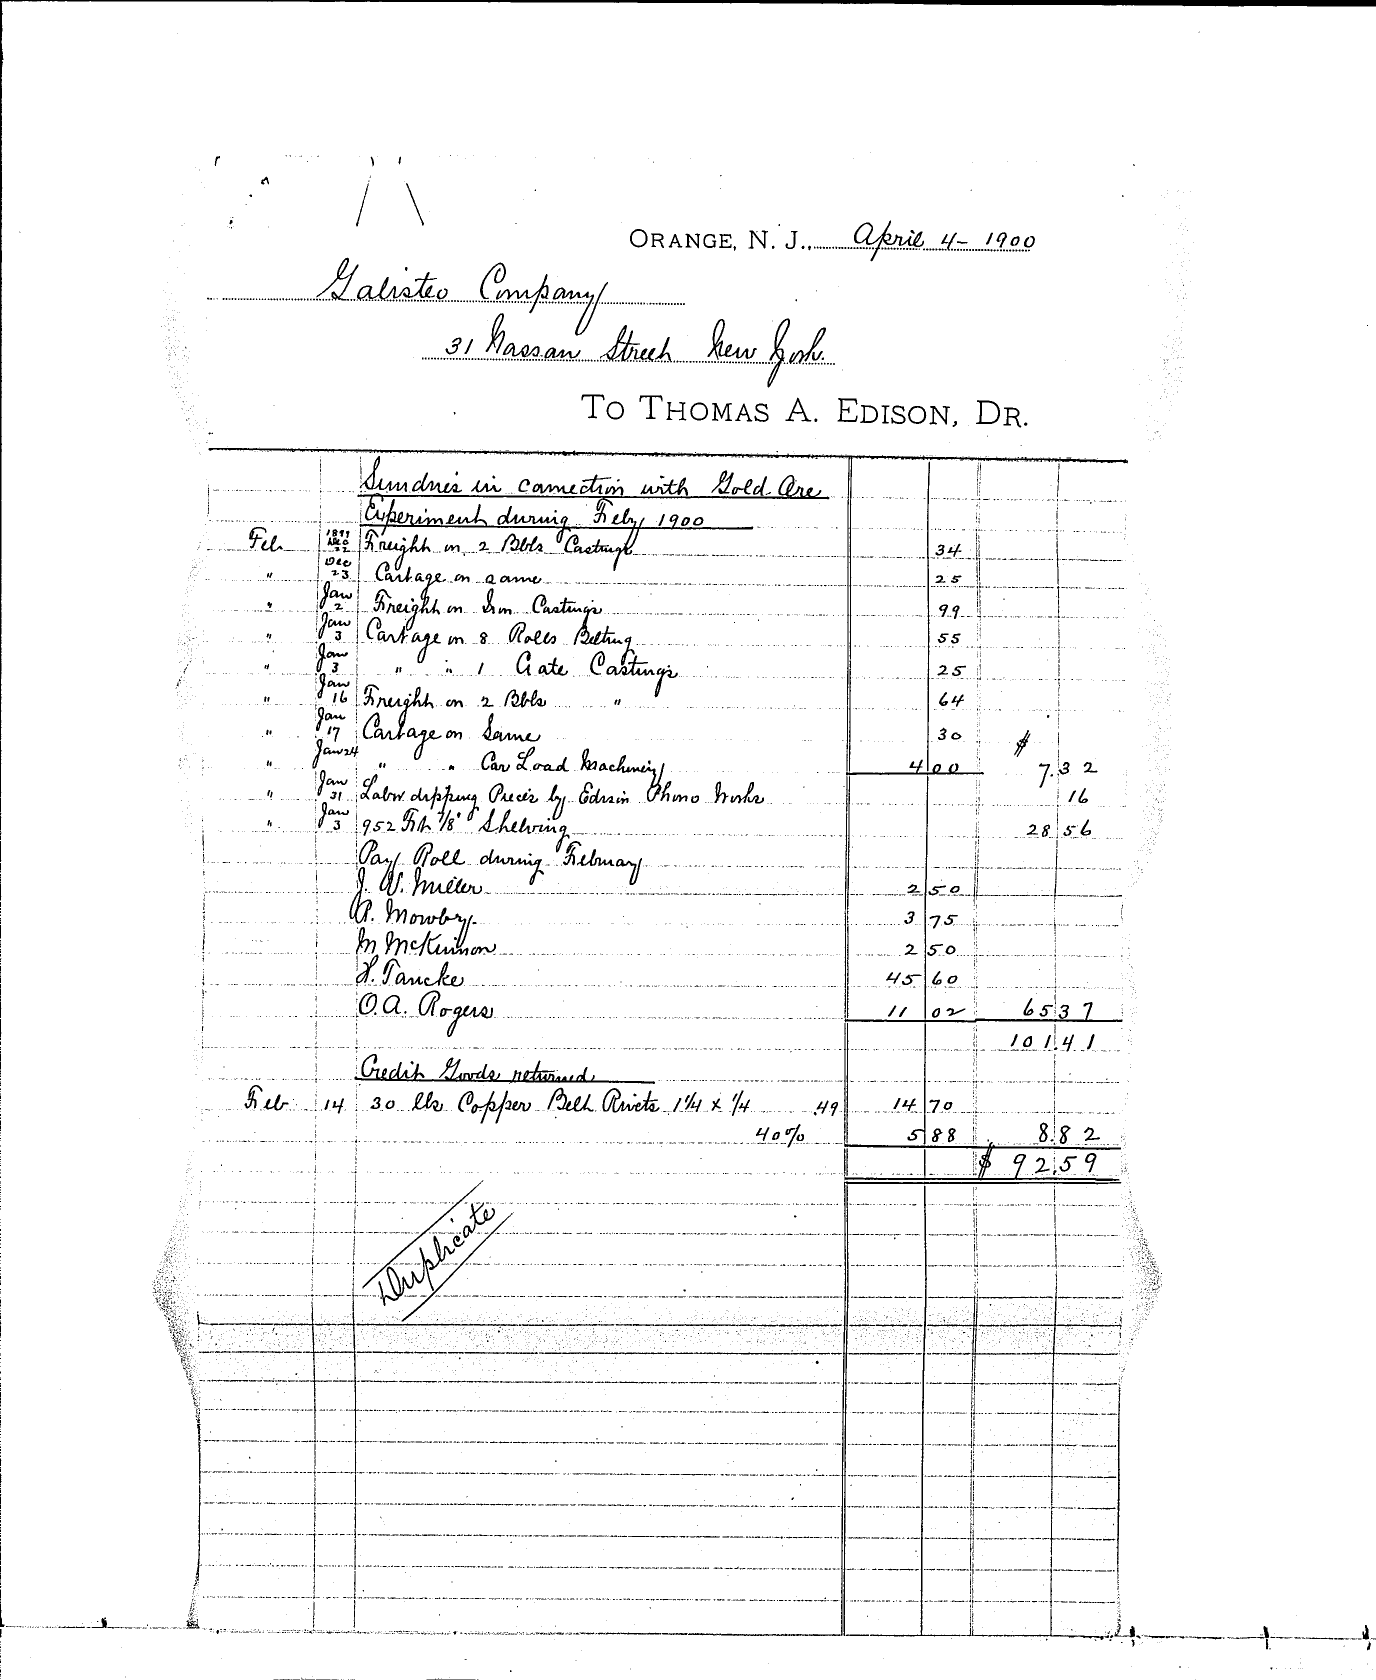 ORANGE, N. J., April 4 - 1900
Galisteo Company
31 Nassau Street New York
TO THOMAS A. EDISON, DR.
Sundries in connection with Gold Ore
Experiment during Feby 1900
Feb 1899 Dec 22 Freight on 2 Bbls Castings 34
" Dec 23 Cartage on same 25
" Jan 2 Freight on Iron Castings 99
" Jan 3 Cartage on 8 Rolls Belting 55
" Jan 3 " " 1 Crate Castings 25
" Jan 16 Freight on 2 Bbls " 64
" Jan 17 Cartage on Same 30 $
" Jan 24 " " Car Load Machinery 4 00 7.32
" Jan 31 Labor dipping Pieces by Edison Phono Works 16
" Jan 3 952 Ft 7/8" Shelving 28 56
Pay Roll during February
J. V. Miller 2 50
A. Mowbry 3 75
M McKinnon 2 50
H. Tancke 45 60
O. A. Rogers 11 02 65 37
101.41
Credit Goods returned
Feb 14 30 lbs Copper Belt Rivets 1 1/4 x 1/4 .49 14 70
40% 5 88 8.82
$ 92.59
Duplicate